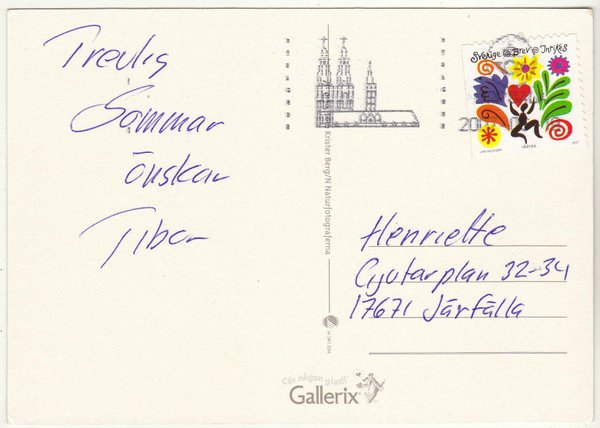 Trevlig
Sommar
önskar
Tibor
Sverige Brev Inrikes
Krister Berg/N Naturfotograferna
Henriette
Gjutarplan 32-34
17671 Järfälla
Gör någon glad!
Gallerix